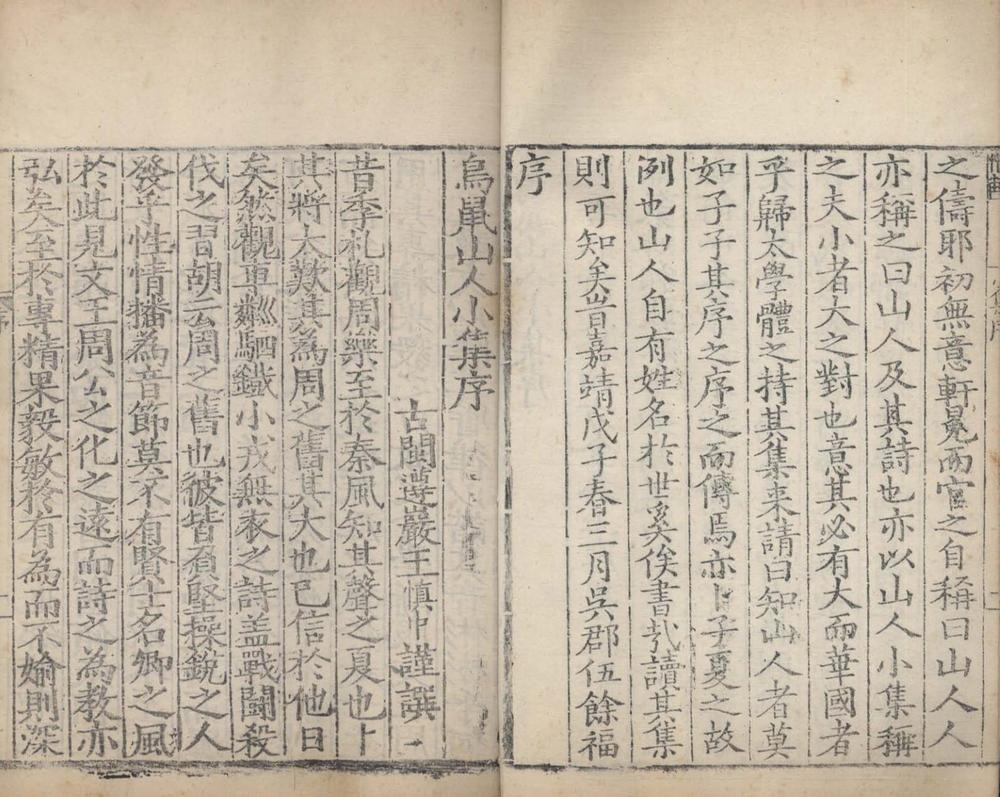 之儔耶初無意軒冕而官之自稱曰山人人
亦稱之曰山人及其詩也亦以山人小集稱
之夫小者大之對也意其必有大而華國者
乎歸太學體之持其集来請曰知山人者莫
如子子其序之序之而傳焉亦卜子夏之故
例也山人自有姓名於世奚俟書㢤讀其集
則可知矣旹嘉靖戊子春三月吳郡伍餘福
序
鳥鼠山人小集序
古閩遵巖王慎中謹譔
昔季札觀周樂至於秦風知其聲之夏也卜
其將大歎其為周之舊其大也已信於他日
矣然觀車鄰駟鐵小戎無衣之詩盖戰鬪殺
伐之習胡云周之舊也彼皆有堅操銳之人
發乎性情播為音節莫不有賢士名卿之風
於此見文王周公之化之遠而詩之為教亦
弘矣至於專精果毅敏於有為而不婾則深